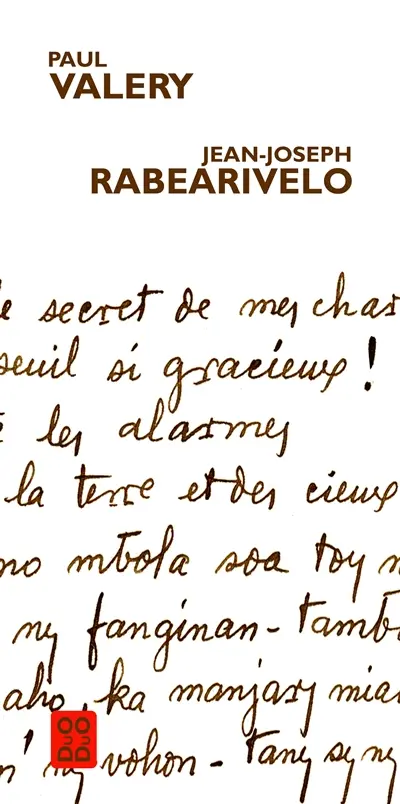 PAUL
VALERY
JEAN-JOSEPH
RABEARIVELO
le secret de mes char
seuil si gracieux !
les alarmes
la terre et des cieux
no mbola soa toy n
ny fanginan-tamb
aho, ka manjary mia
n' ny vohon-tany sy ny
DUO
DUO